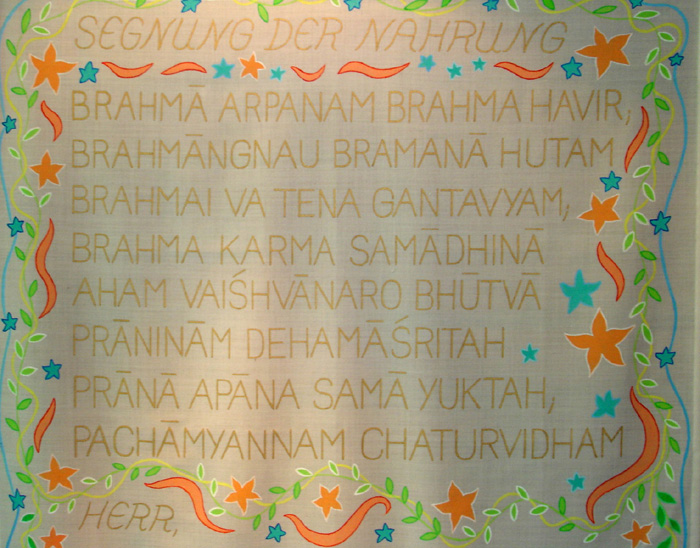 SEGNUNG DER NAHRUNG
BRAHMĀ ARPANAM BRAHMA HAVIR,
BRAHMĀNGNAU BRAMANĀ HUTAM
BRAHMAI VA TENA GANTAVYAM,
BRAHMA KARMA SAMĀDHINĀ
AHAM VAIŚHVĀNARO BHŪTVĀ
PRĀNINĀM DEHAMĀŚRITAH
PRĀNĀ APĀNA SAMĀ YUKTAH,
PACHĀMYANNAM CHATURVIDHAM
HERR,